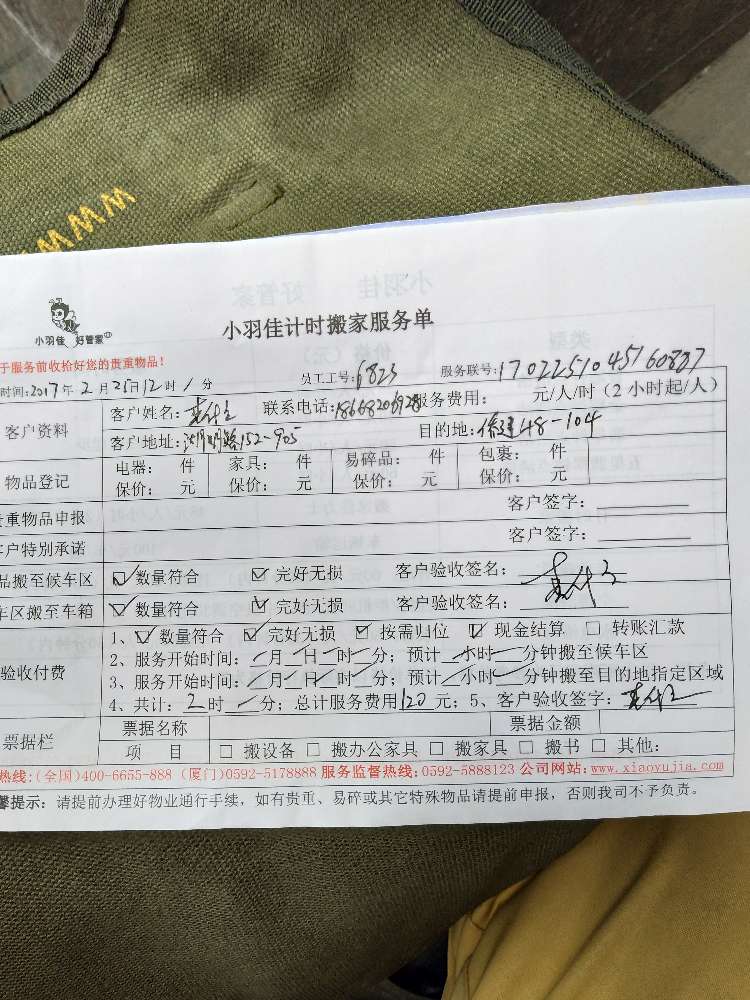 WWW
小羽佳 好管家
小羽佳计时搬家服务单
于服务前收拾好您的贵重物品!
时间:2017年2月25日12时/分 员工工号:6823 服务联号:1702251045160887
客户资料 客户姓名: 联系电话:18668206928 服务费用: 元/人/时(2小时起/人)
客户地址: 152-905 目的地: 48-104
物品登记 电器: 件 家具: 件 易碎品: 件 包裹: 件
保价: 元 保价: 元 保价: 元 保价: 元
贵重物品申报 客户签字:
客户特别承诺 客户签字:
品搬至候车区 ☑数量符合 ☑完好无损 客户验收签名:
车区搬至车箱 ☑数量符合 ☑完好无损 客户验收签名:
验收付费 1、☑数量符合 ☑完好无损 ☑按需归位 ☑现金结算 □转账汇款
2、服务开始时间:/月/日/时/分;预计/小时/分钟搬至候车区
3、服务开始时间:/月/日/时/分;预计/小时/分钟搬至目的地指定区域
4、共计:2时/分;总计服务费用120元;5、客户验收签字:
票据栏 票据名称 票据金额
项 目 □搬设备 □搬办公家具 □搬家具 □搬书 □其他:
热线:(全国)400-6655-888 (厦门)0592-5178888 服务监督热线:0592-5888123 公司网站:www.xiaoyujia.com
馨提示:请提前办理好物业通行手续,如有贵重、易碎或其它特殊物品请提前申报,否则我司不予负责。